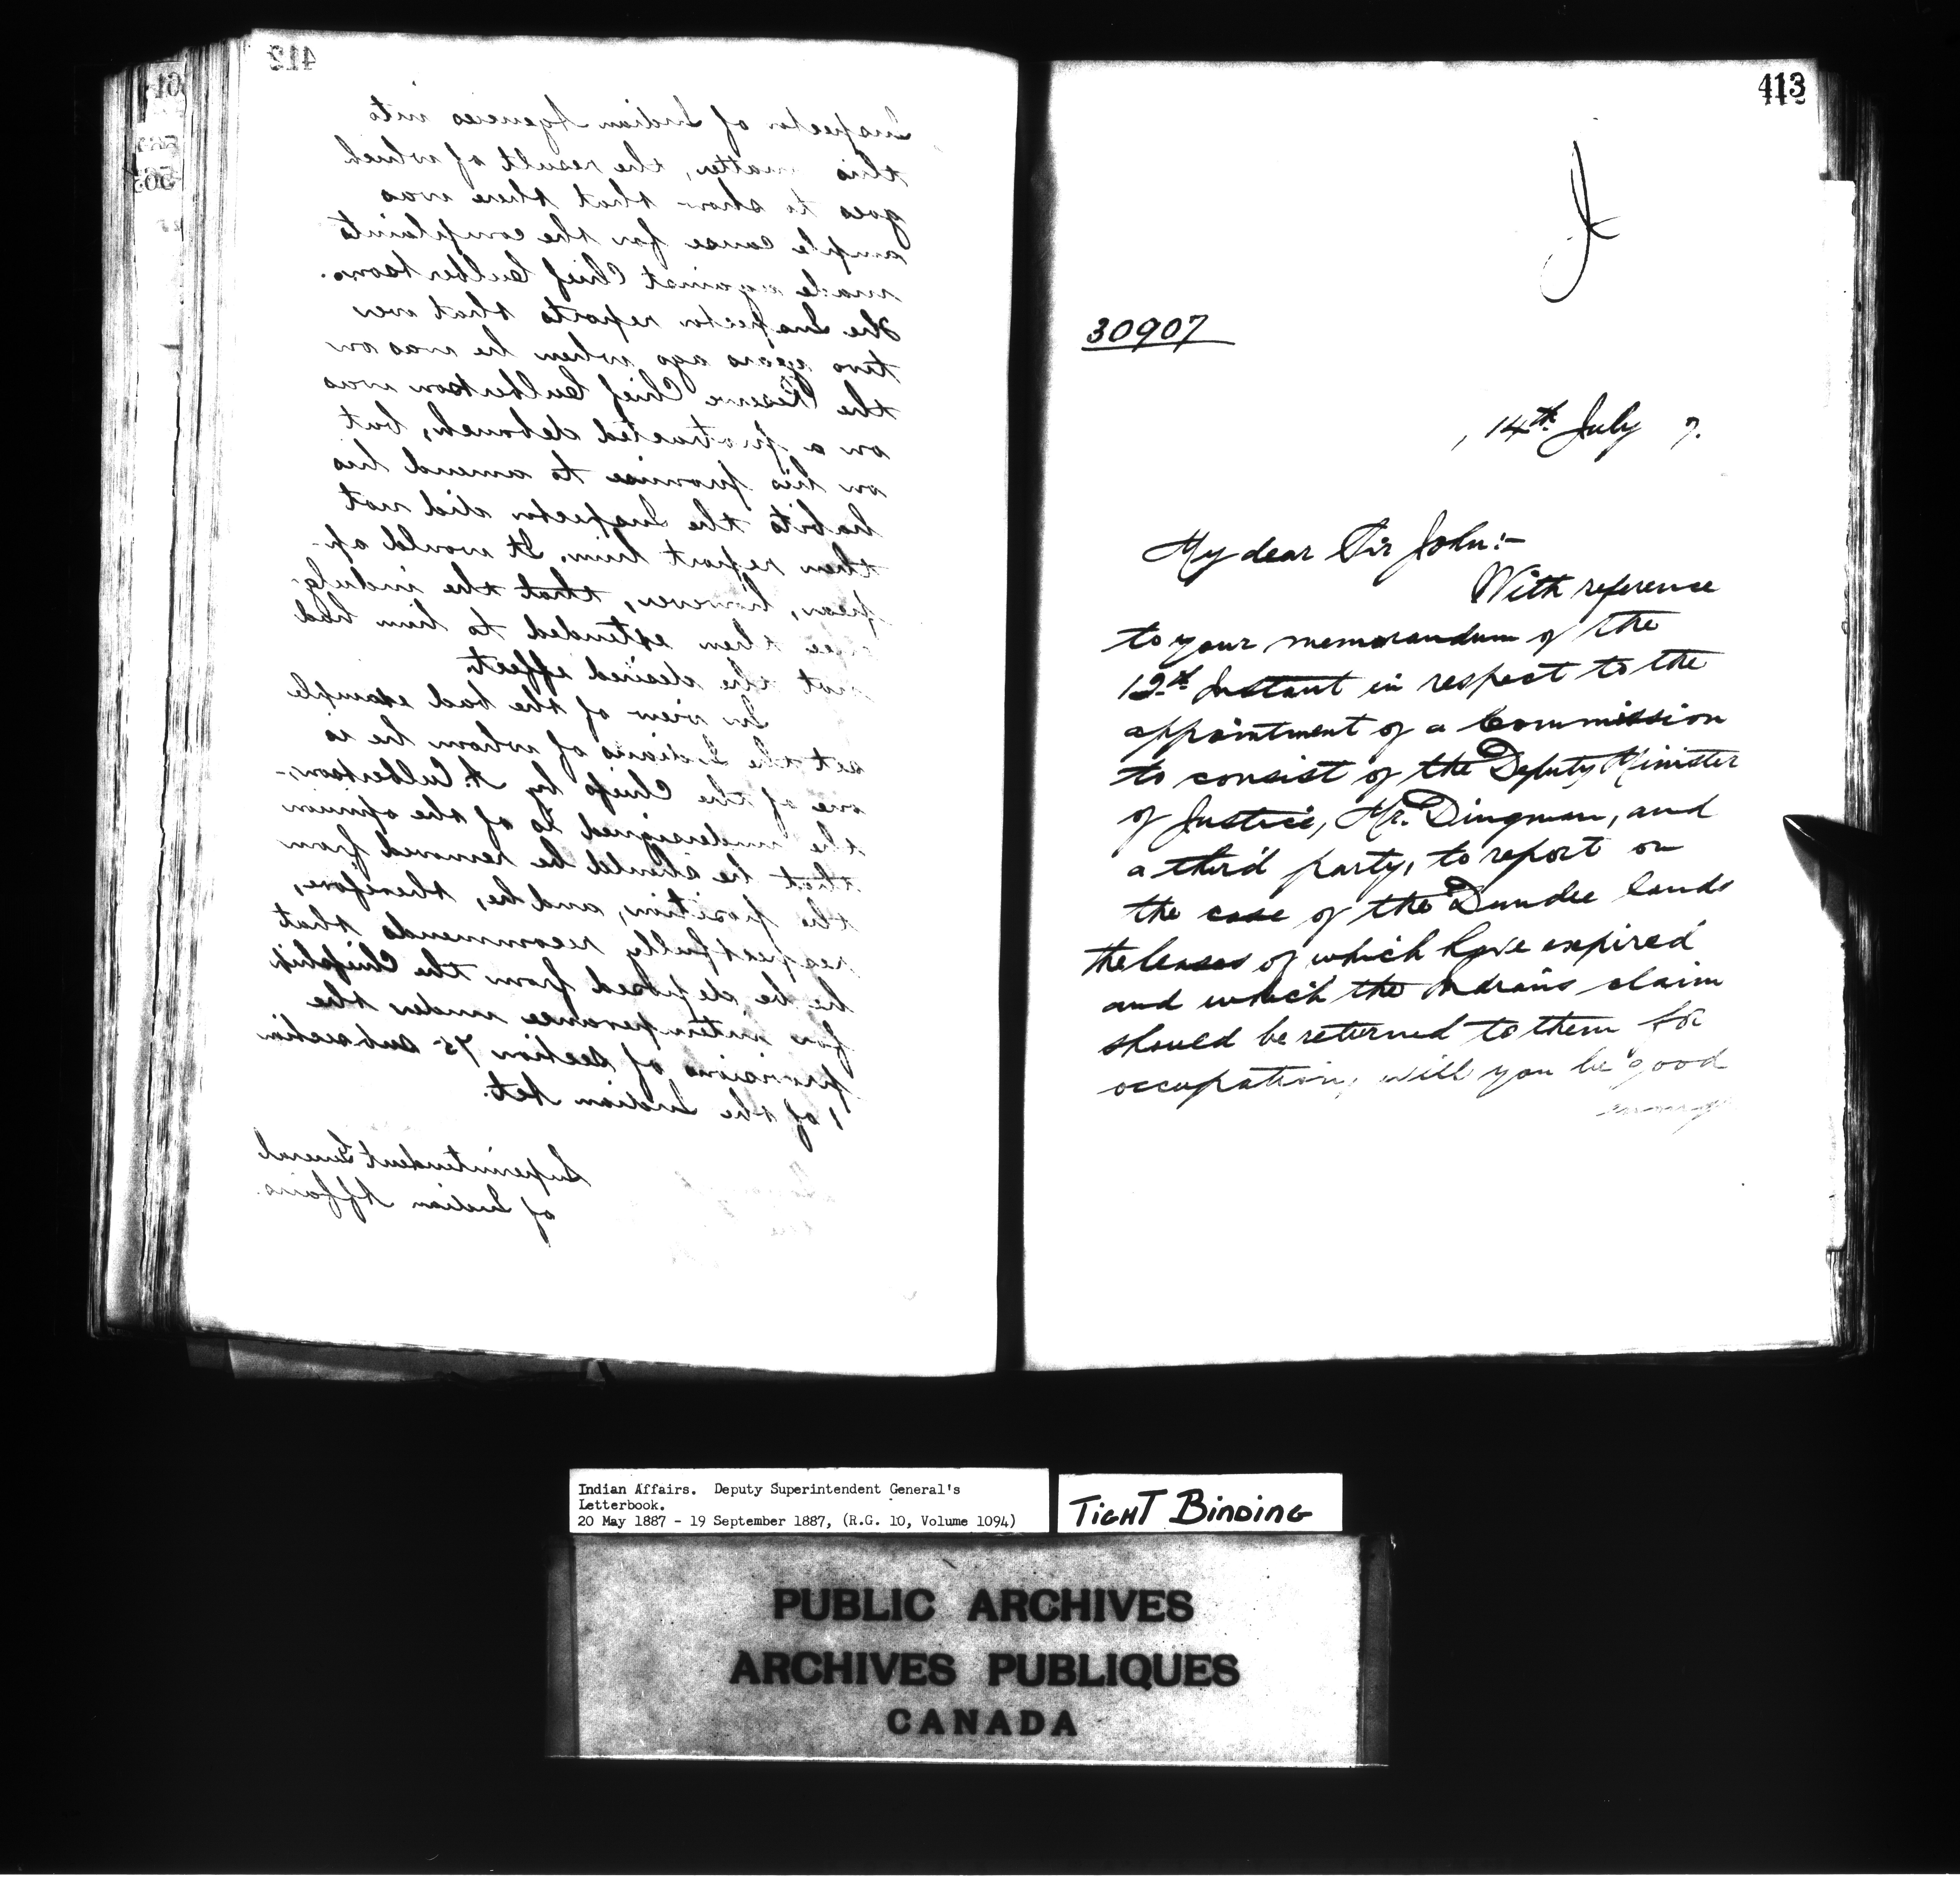 412
Inspector of Indian Agencies into
this matter, the result of which
goes to show that there was
ample cause for the complaints
made against Chief Culbertson.
The Inspector reports that over
two years ago when he was on
the Reserve Chief Culbertson was
on a protracted debauch, but
on his promise to amend his
habits the Inspector did not
then report him. It would ap-
pear, however, that the indulg-
ence then extended to him had
not the desired effect.
In view of the bad example
set the Indians of whom he is
one of the Chiefs by A. Culbertson,-
the undersigned is of the opinion
that he should be removed from
the position, and he, therefore,
respectfully recommends that
he be deposed from the Chiefship
for intemperance under the
provisions of section 75 subsection
1, of the Indian Act.
Superintendent General
of Indian Affairs.
413
30907
, 14th July 7.
My dear Sir John:-
With reference
to your memorandum of the
12th Instant in respect to the
appointment of a Commission
to consist of the Deputy Minister
of Justice, Mr. Dingman, and
a third party, to report on
the case of the Dundee lands
the leases of which have expired
and which the Indians claim
should be returned to them for
occupation, will you be good
enough
Indian Affairs. Deputy Superintendent General's
Letterbook.
20 May 1887 - 19 September 1887, (R.G. 10, Volume 1094)
TIGHT BINDING
PUBLIC ARCHIVES
ARCHIVES PUBLIQUES
CANADA